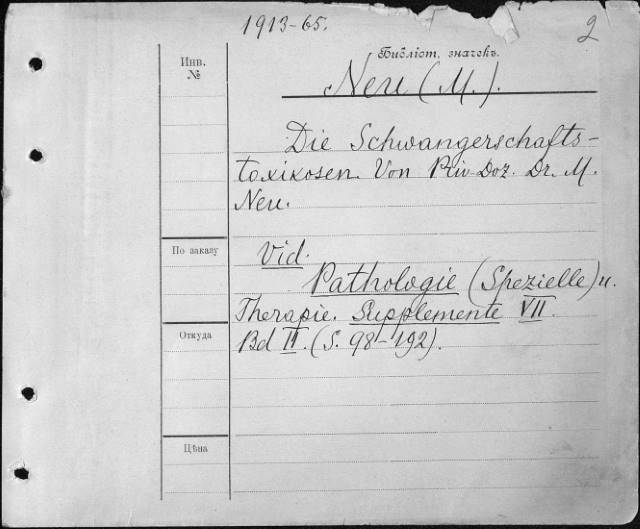 1913-65.
2
Библіот. значекъ.
Инв.
№
Neu (M.).
Die Schwangerschafts-
toxikosen. Von Priv-Doz. Dr. M.
Neu.
По заказу
Vid.
Pathologie (Spezielle) u.
Therapie. Supplemente VII.
Откуда
Bd II. (S. 98-192).
Цѣна